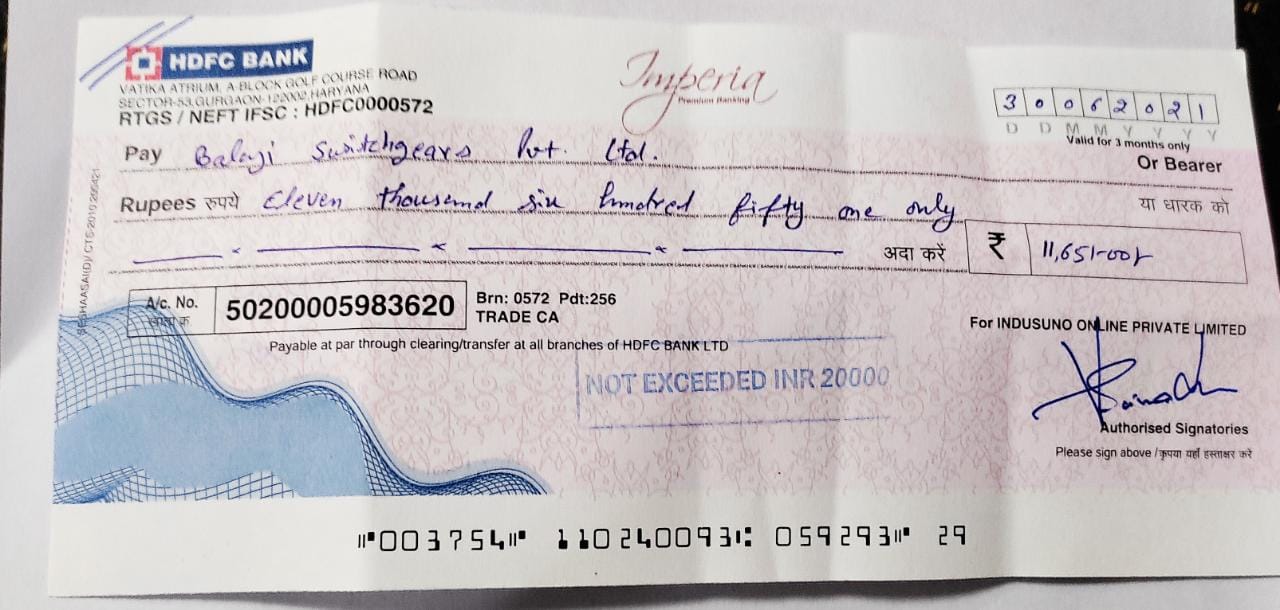 HDFC BANK
VATIKA ATRIUM, A-BLOCK GOLF COURSE ROAD
SECTOR-53,GURGAON-122002,HARYANA
RTGS / NEFT IFSC : HDFC0000572
Imperia
Premium Banking
30062021
D D M M Y Y Y Y
Valid for 3 months only
Pay Balaji Switchgears Pvt. Ltd.
Or Bearer
Rupees रुपये Eleven thousand six hundred fifty one only
या धारक को
अदा करें ₹ 11,651-00/-
A/c. No. 50200005983620
खाता क्र
Brn: 0572 Pdt:256
TRADE CA
Payable at par through clearing/transfer at all branches of HDFC BANK LTD
NOT EXCEEDED INR 20000
For INDUSUNO ONLINE PRIVATE LIMITED
Authorised Signatories
Please sign above /कृपया यहाँ हस्ताक्षर करें
⑈003754⑈ 110240093⑆ 059293⑈ 29